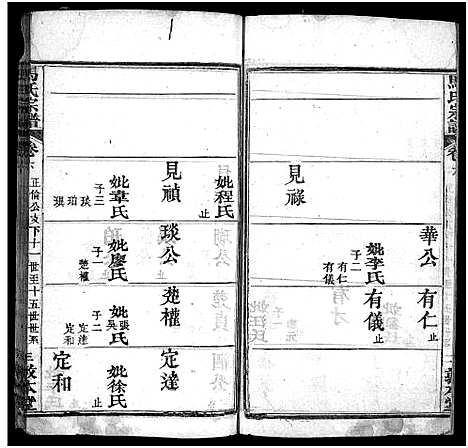 馬氏宗譜
卷六
見祿
華公
妣李氏
子二
有仁
有儀
有仁
止
有儀
止
敦本堂
妣程氏
止
見禎
妣辜氏
子三
琰
珀
琰公
妣廖氏
子一
楚權
楚權
妣張氏
吳
子二
定達
定和
定達
妣徐氏
止
定和
馬氏宗譜
卷六
正倫公支下十一世至十五世世系
敦本堂